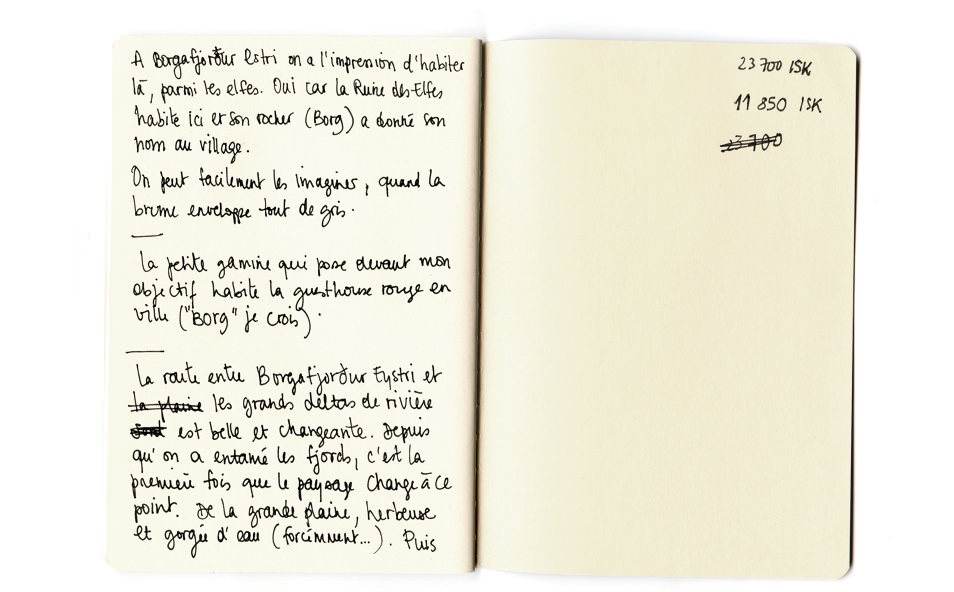 A Borgafjorður Estri on a l'impression d'habiter
là, parmi les elfes. Oui car la Reine des Elfes
habite ici et son rocher (Borg) a donné son
nom au village.
On peut facilement les imaginer, quand la
brume enveloppe tout de gris.
La petite gamine qui pose devant mon
objectif habite la guesthouse rouge en
ville ("Borg" je crois).
La route entre Borgafjorður Eystri et
la plaine les grands deltas de rivière
sont est belle et changeante. Depuis
qu'on a entamé les fjords, c'est la
première fois que le paysage change à ce
point. De la grande plaine, herbeuse
et gorgée d'eau (forcément...). Puis
23 700 ISK
11 850 ISK
23 700